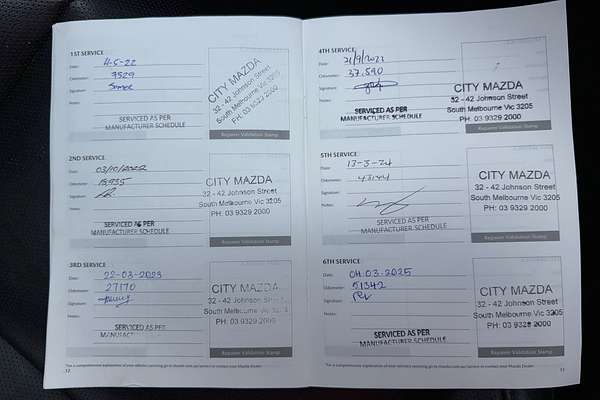 1ST SERVICE
Date: 4-5-22
Odometer: 7529
Signature:
Notes:
SERVICED AS PER
MANUFACTURER SCHEDULE
CITY MAZDA
32 - 42 Johnson Street
South Melbourne Vic 3205
PH: 03 9329 2000
Repairer Validation Stamp
2ND SERVICE
Date: 03/10/2022
Odometer: 15935
Signature:
Notes:
SERVICED AS PER
MANUFACTURER SCHEDULE
CITY MAZDA
32 - 42 Johnson Street
South Melbourne Vic 3205
PH: 03 9329 2000
Repairer Validation Stamp
3RD SERVICE
Date: 22-03-2023
Odometer: 27170
Signature:
Notes:
SERVICED AS PER
MANUFACT
CITY MAZDA
32 - 42 Johnson S
South Melbourne Vic 3205
PH: 03 9329 2000
Repairer Validation Stamp
12
4TH SERVICE
Date: 21/9/2023
Odometer: 37,590
Signature:
Notes:
SERVICED AS PER
MANUFACTURER SCHEDULE
CITY MAZDA
32 - 42 Johnson Street
South Melbourne Vic 3205
PH: 03 9329 2000
Repairer Validation Stamp
5TH SERVICE
Date: 13-3-24
Odometer: 43144
Signature:
Notes:
SERVICED AS PER
MANUFACTURER SCHEDULE
CITY MAZDA
32 - 42 Johnson Street
South Melbourne Vic 3205
PH: 03 9329 2000
Repairer Validation Stamp
6TH SERVICE
Date: 04.03.2025
Odometer: 51342
Signature:
Notes:
SERVICED AS PER
MANUFACTURER SCHEDULE
CITY MAZDA
32 - 42 Johnson Street
South Melbourne Vic 3205
PH: 03 9329 2000
Repairer Validation Stamp